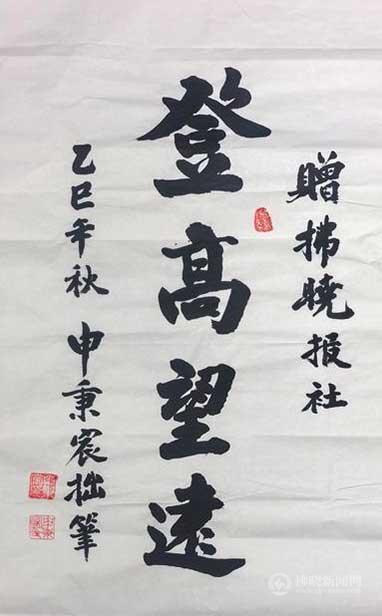 贈拂曉报社
登高望遠
乙巳年秋 申秉宸拙筆
拂晓新闻网